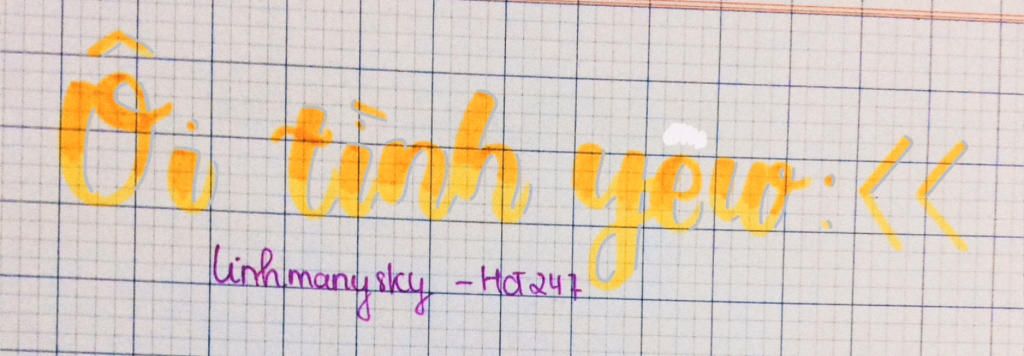 Ôi tình yew : <<
linhmanysky - HĐ247